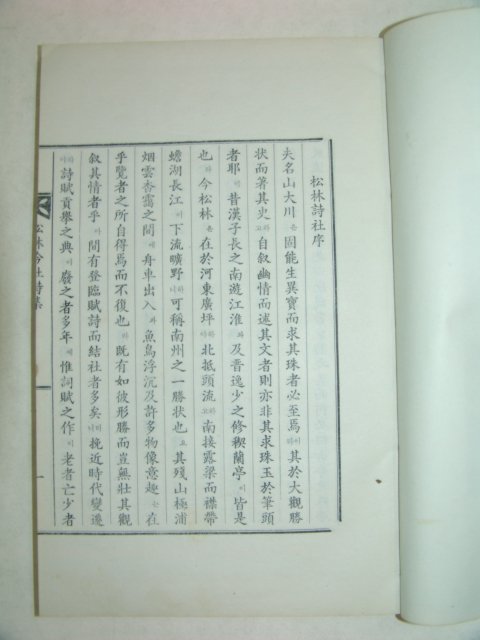 松林詩社序
夫名山大川은固能生異寶而求其珠者必至焉하며其於大觀勝
狀而著其史하고自叙幽情而述其文者則亦非其求珠玉於筆頭
者耶아昔漢子長之南遊江淮와及晉逸少之修禊蘭亭이皆是
也라今松林은在於河東廣坪하야北抵頭流하고南接露梁而襟帶
蟾湖長江이下流曠野하니可稱南州之一勝狀也오其殘山極浦
烟雲杳靄之間에舟車出入과魚鳥浮沉及許多物像意趣는在
乎覽者之所自得焉而不復也라既有如彼形勝而豈無壯其觀
叙其情者乎아間有登臨賦詩而結社者多矣러니挽近時代變遷
하야詩賦貢擧之典이廢之者多年에惟詞賦之作이老者亡少者
松林吟社詩集
一